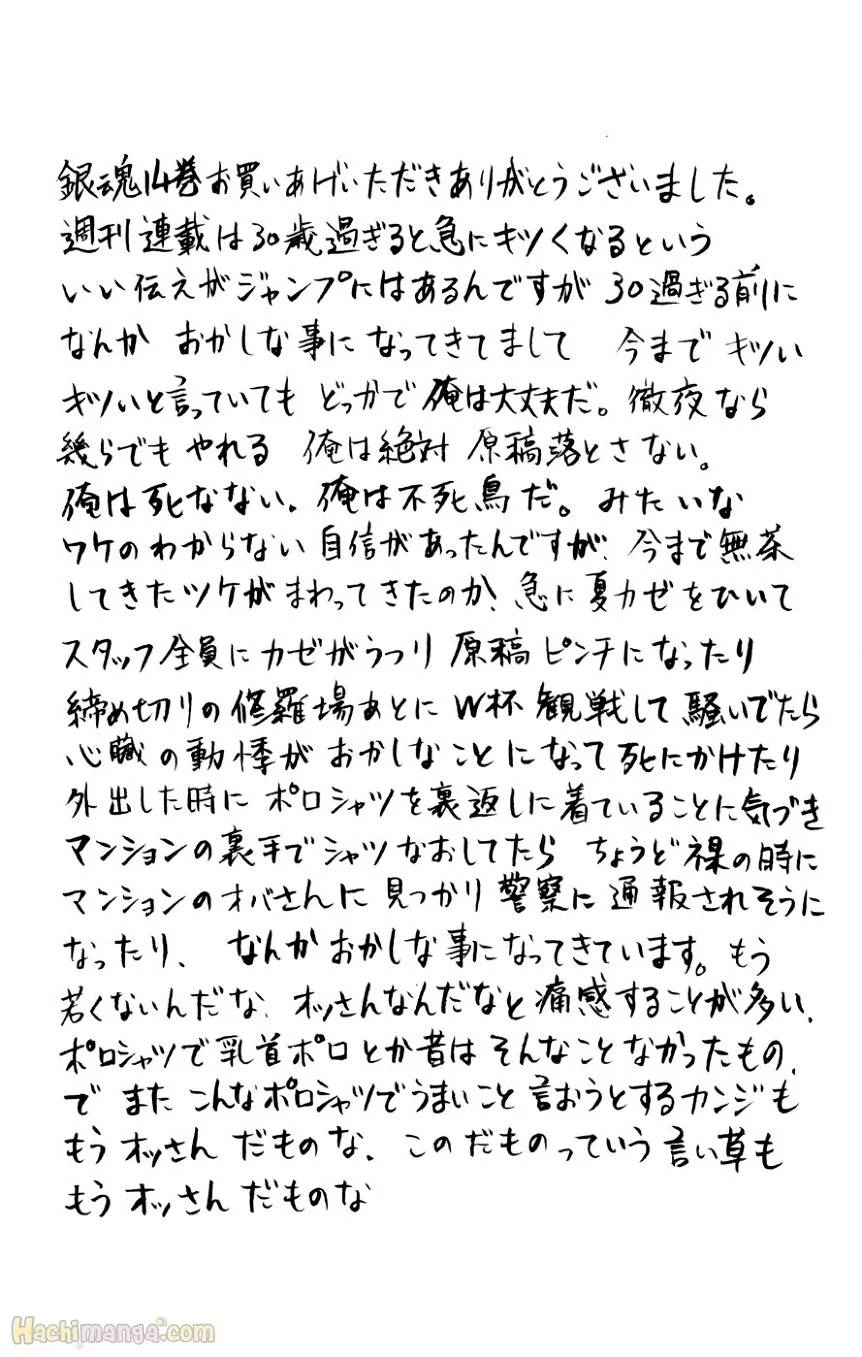 銀魂14巻お買いあげいただきありがとうございました。
週刊連載は30歳過ぎると急にキツくなるという
いい伝えがジャンプにはあるんですが 30過ぎる前に
なんか おかしな事に なってきてまして 今まで キツい
キツいと言っていても どっかで 俺は大丈夫だ。徹夜なら
幾らでも やれる 俺は絶対 原稿落とさない。
俺は死なない。俺は不死鳥だ。みたいな
ワケのわからない 自信があったんですが、今まで無茶
してきたツケがまわってきたのか、急に夏カゼをひいて
スタッフ全員にカゼがうつり 原稿ピンチになったり
締め切りの修羅場あとに W杯 観戦して騒いでたら
心臓の動悸が おかしなことになって 死にかけたり
外出した時に ポロシャツを裏返しに着ていることに気づき
マンションの裏手でシャツなおしてたら ちょうど裸の時に
マンションのオバさんに 見つかり 警察に 通報されそうに
なったり、 なんかおかしな事になってきています。もう
若くないんだな、オッさんなんだなと痛感することが多い、
ポロシャツで乳首ポロとか昔はそんなことなかったもの、
で また こんなポロシャツでうまいこと 言おうとするカンジも
もう オッさん だものな、 このだものっていう言い草も
もう オッさん だものな
Hachimanga.com